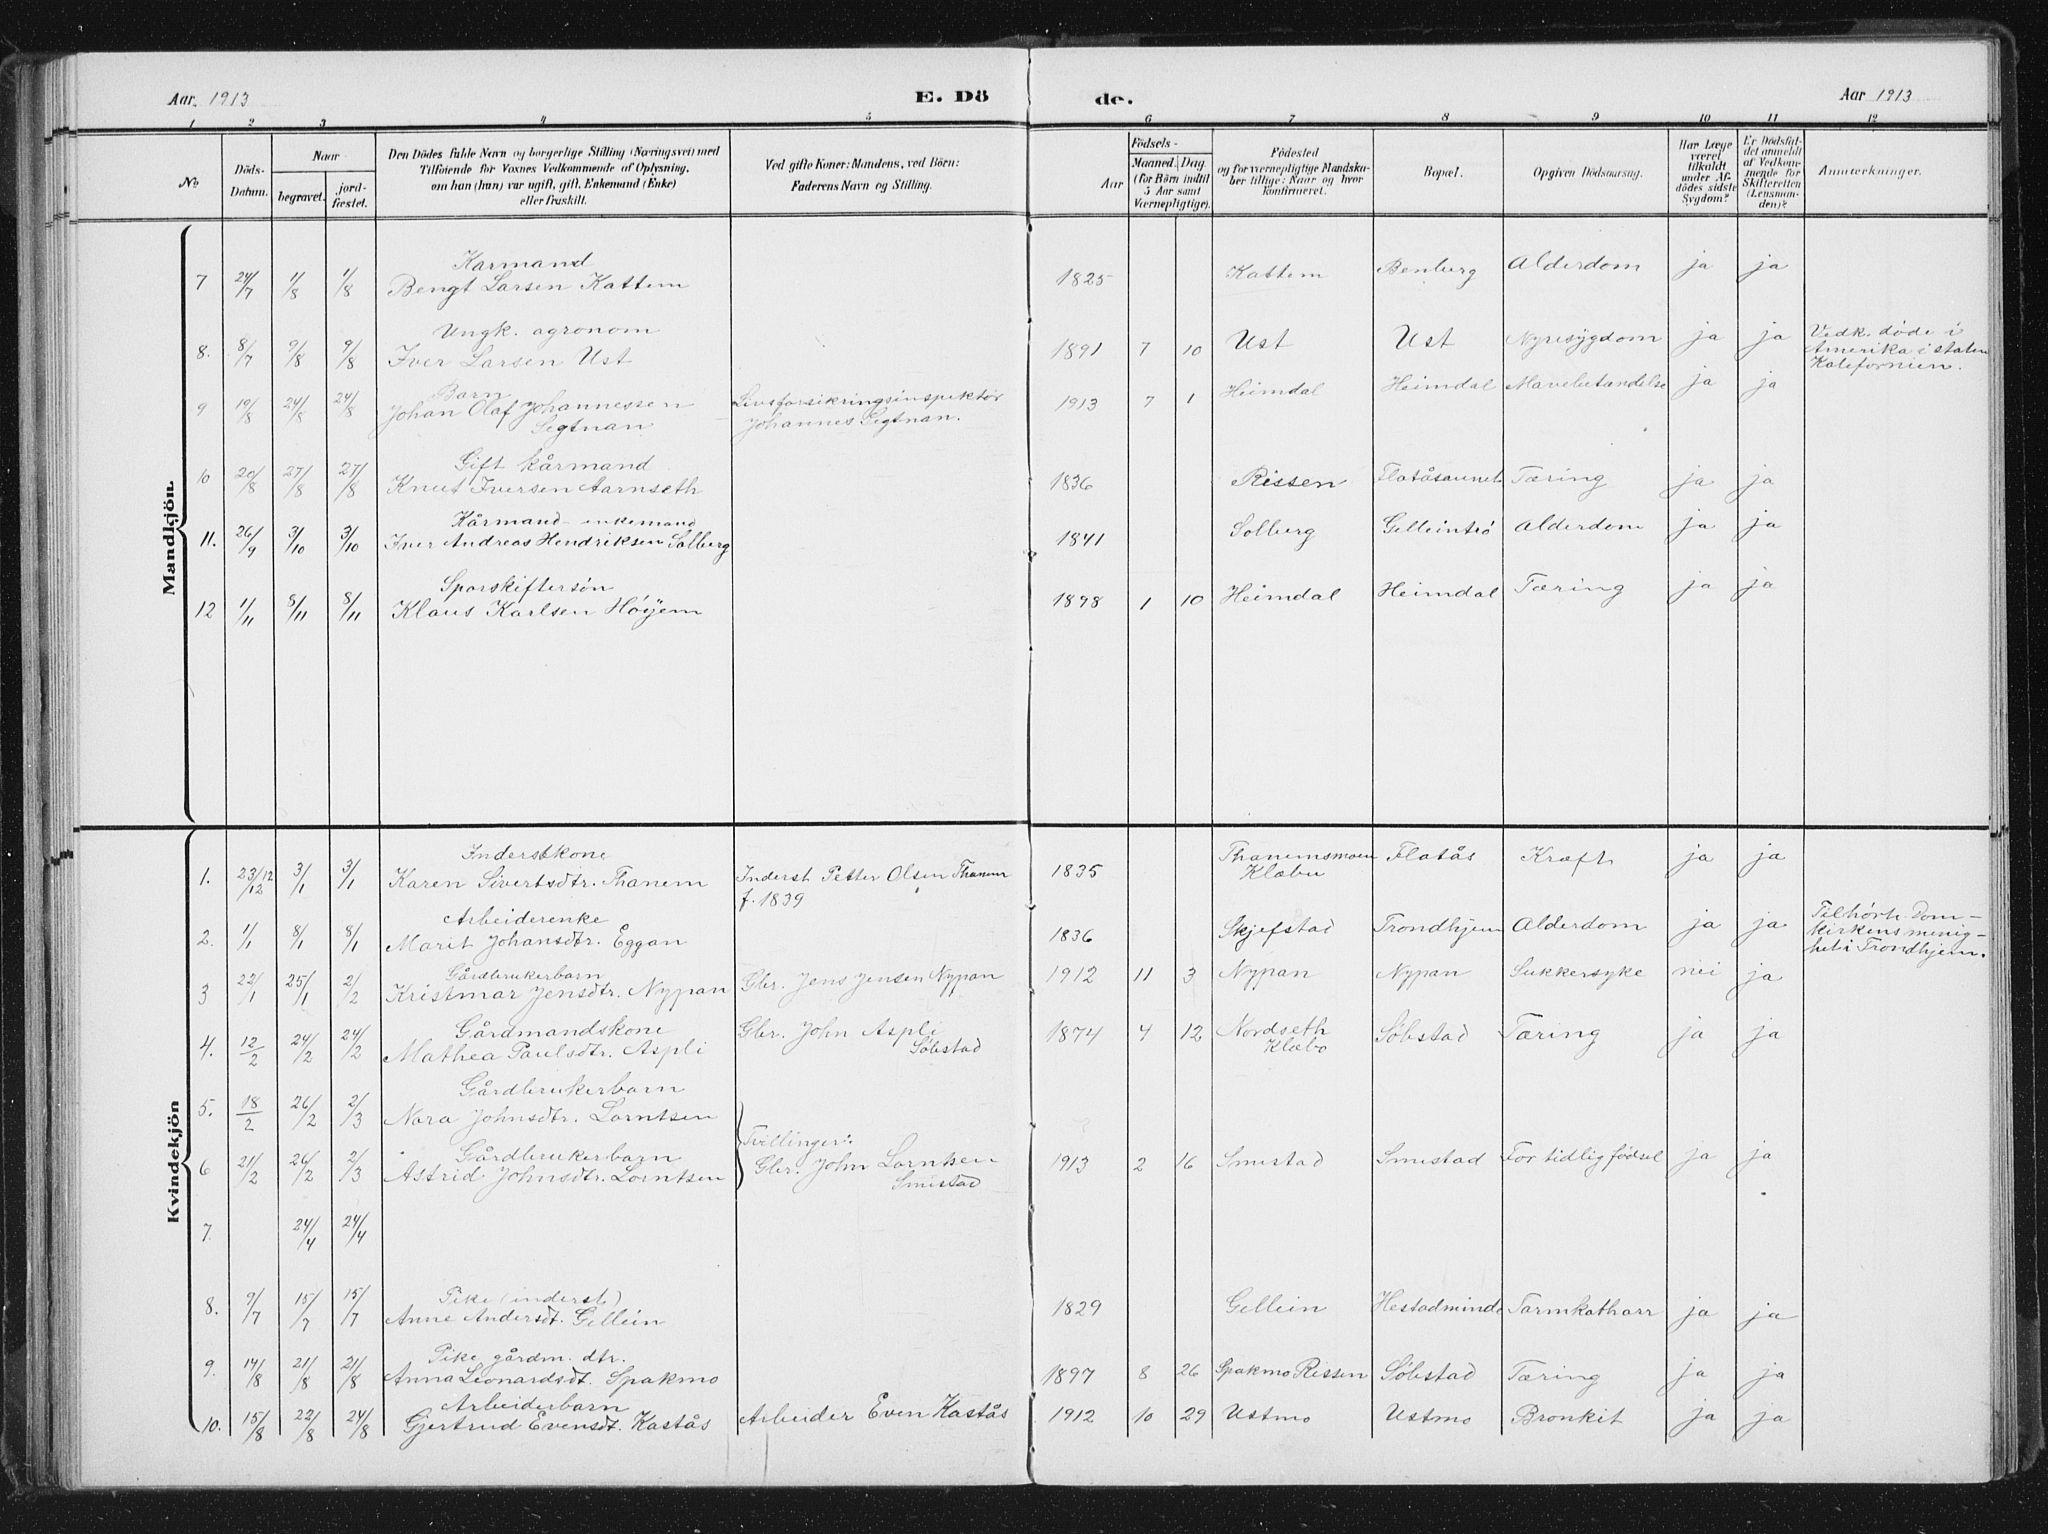 Aar 1913 E. Dö de. Aar 1913
1 2 3 4 5 6 7 8 9 10 11 12
No
Döds-Datum.
Naar begravet. jord-fæstet.
Den Dödes fulde Navn og borgerlige Stilling (Næringsvei) med
Tilföiende for Voxnes Vedkommende af Oplysning,
om han (hun) var ugift, gift, Enkemand (Enke)
eller fraskilt.
Ved gifte Koner: Mandens, ved Börn:
Faderens Navn og Stilling.
Födsels-
Aar Maaned. Dag.
(for Börn indtil
5 Aar samt
Værnepligtige).
Födested
og for værnepligtige Mandska-
ber tillige: Naar og hvor
konfirmeret.
Bopæl.
Opgiven Dödsaarsag.
Har Læge
været
tilkaldt
under Af-
dödes sidste
Sygdom?
Er Dödsfal-
det anmeldt
af Vedkom-
mende for
Skifteretten
(Lensman-
den)?
Anmærkninger.
Mandkjön.
Karmand
7 24/7 1/8 1/8 Bengt Larsen Kattem 1825 Kattem Benberg Alderdom ja ja
Ungk. agronom
8. 8/7 9/8 9/8 Iver Larsen Ust 1891 7 10 Ust Ust Nyresygdom ja ja Vedk. døde i
Amerika i staten
Kalefornien.
Barn
9 19/8 24/8 24/8 Johan Olaf Johannessen Livsforsikringsinspektør 1913 7 1 Heimdal Heimdal Mavebetændelse ja ja
Segtnan Johannes Segtnan.
Gift kårmand
10 20/8 27/8 27/8 Knut Iversen Aarnseth 1836 Rissen Flatåsaunet Tæring ja ja
Kårmand - enkemand
11. 26/9 3/10 3/10 Iver Andreas Hendriksen Solberg 1841 Solberg Gelleintrø Alderdom ja ja
Sporskiftersøn
12 1/11 8/11 8/11 Klaus Karlsen Høyem 1898 1 10 Heimdal Heimdal Tæring ja ja
Kvindekjön
Inderstkone
1. 23/12 12 3/1 3/1 Karen Sivertsdtr. Thanem Inderst Petter Olsen Thanem 1835 Thanemsmoen Flatås Kræft ja ja
f. 1839 Klæbu
Arbeiderenke
2. 1/1 8/1 8/1 Marit Johansdtr. Eggan 1836 Skjefstad Trondhjem Alderdom ja ja Tilhørte Dom-
kirkens menig-
het i Trondhjem.
Gårdbrukerbarn
3 22/1 25/1 2/2 Kristmar Jensdtr. Nypan Gbr. Jens Jensen Nypan 1912 11 3 Nypan Nypan Sukkersyke nei ja
Gårdmandskone
4. 12/2 24/2 24/2 Mathea Paulsdtr. Aspli Gbr. John Aspli 1874 4 12 Nordseth Søbstad Tæring ja ja
Søbstad Klæbo
Gårdbrukerbarn
5. 18/2 26/2 2/3 Nora Johnsdtr. Lorntsen
Gårdbrukerbarn Tvillinger:
6 21/2 26/2 2/3 Astrid Johnsdtr. Lorntsen Gbr. John Lorntsen 1913 2 16 Smistad Smistad For tidlig fødsel ja ja
Smistad
7. 24/4 24/4
Pike (inderst)
8. 9/7 15/7 15/7 Anne Andersdt. Gellein 1829 Gellein Hestadminde Tarmkatharr ja ja
Pike gårdm. dtr.
9. 14/8 21/8 21/8 Anna Leonardsdt. Spakmo 1897 8 26 Spakmo Rissen Søbstad Tæring ja ja
Arbeiderbarn
10. 15/8 22/8 24/8 Gjertrud Evensdt. Kastås Arbeider Even Kastås 1912 10 29 Ustmo Ustmo Bronkit ja ja